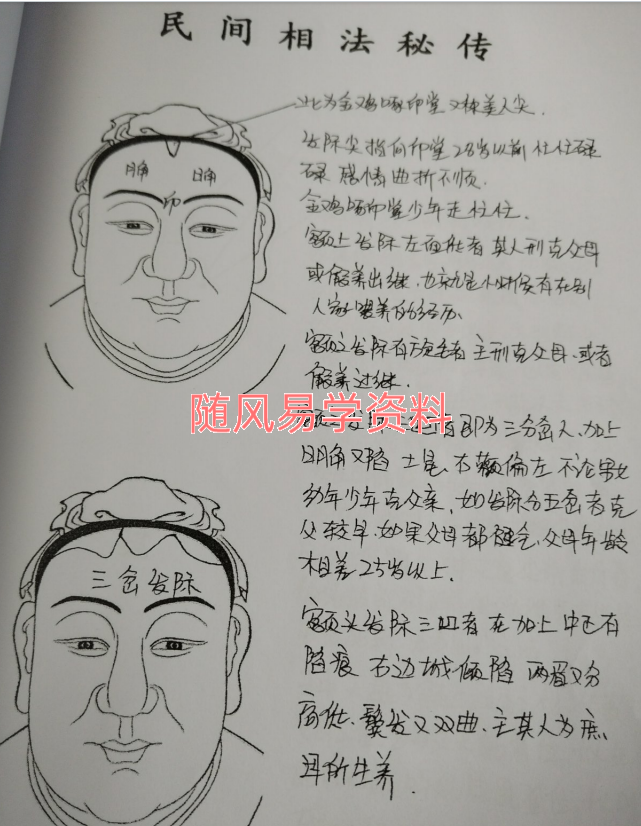 民间相法秘传
此为金鸡啄印堂又称美人尖.
发际尖指向印堂28岁以前往往碌
碌 感情曲折不顺.
金鸡啄印堂少年走
额上发际左 者 其人刑克父母
或假养出继.也就是小时候有在别
人家 养的经历.
额上发际有 者 主刑克父母.或者
假养过继.
即为三分岔人.加上
日月角又陷 士是.右颧偏左 不论男女
幼年少年克父亲,如发际分五岔者克
父较早.如果父母都健全.父母年龄
相差25岁以上.
额头发际三凹者 在加上中正有
陷痕 右边城倾陷 两眉又分
高低.鬓发又双曲.主其人为庶
母所生养.
月角 日角
印
随风易学资料
三岔发际